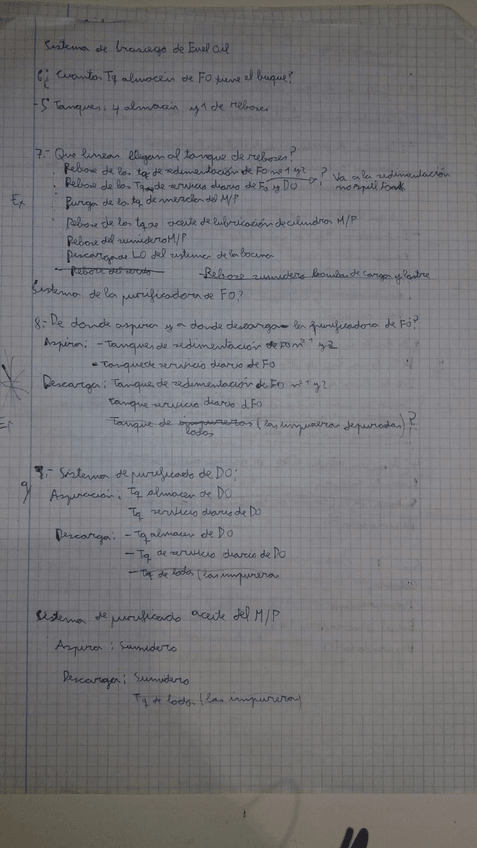 Sistema de trasiego de Fuel Oil
6¿ Cuantos Tq almacén de FO tiene el buque?
-5 Tanques: 4 almacén y 1 de reboses
7.- Que lineas llegan al tanque de reboses?
· Rebose de los tq de sedimentación de FO nº 1 y 2
· Rebose de los Tq de servicio diario de FO y DO ? Va a la sedimentación no spill tank
· Purga de los tq de mezclas del M/P
· Rebose de los tq de aceite de lubricación de cilindros M/P
Rebose del sumidero M/P
Descarga de LO del sistema de la bocina
Rebose del
- Rebose sumidero bombas de carga y lastre
Sistema de la purificadora de FO?
8.- De donde aspira y a donde descarga la purificadora de FO?
Aspira: - Tanques de sedimentación de FO nº 1 y 2
- Tanque de servicio diario de FO
Descarga: Tanque de sedimentación de FO nº 1 y 2
Tanque servicio diario d FO
Tanque de impurezas lodos (las impurezas depuradas)?
9 .- Sistema de purificado de DO:
Aspiración: Tq almacen de DO
Tq servicio diario de DO
Descarga: - Tq almacen de DO
- Tq de servicio diario de DO
- Tq de lodos (las impurezas
Sistema de purificado aceite del M/P
Aspira: Sumidero
Descarga: Sumidero
Tq de lodos (las impurezas)